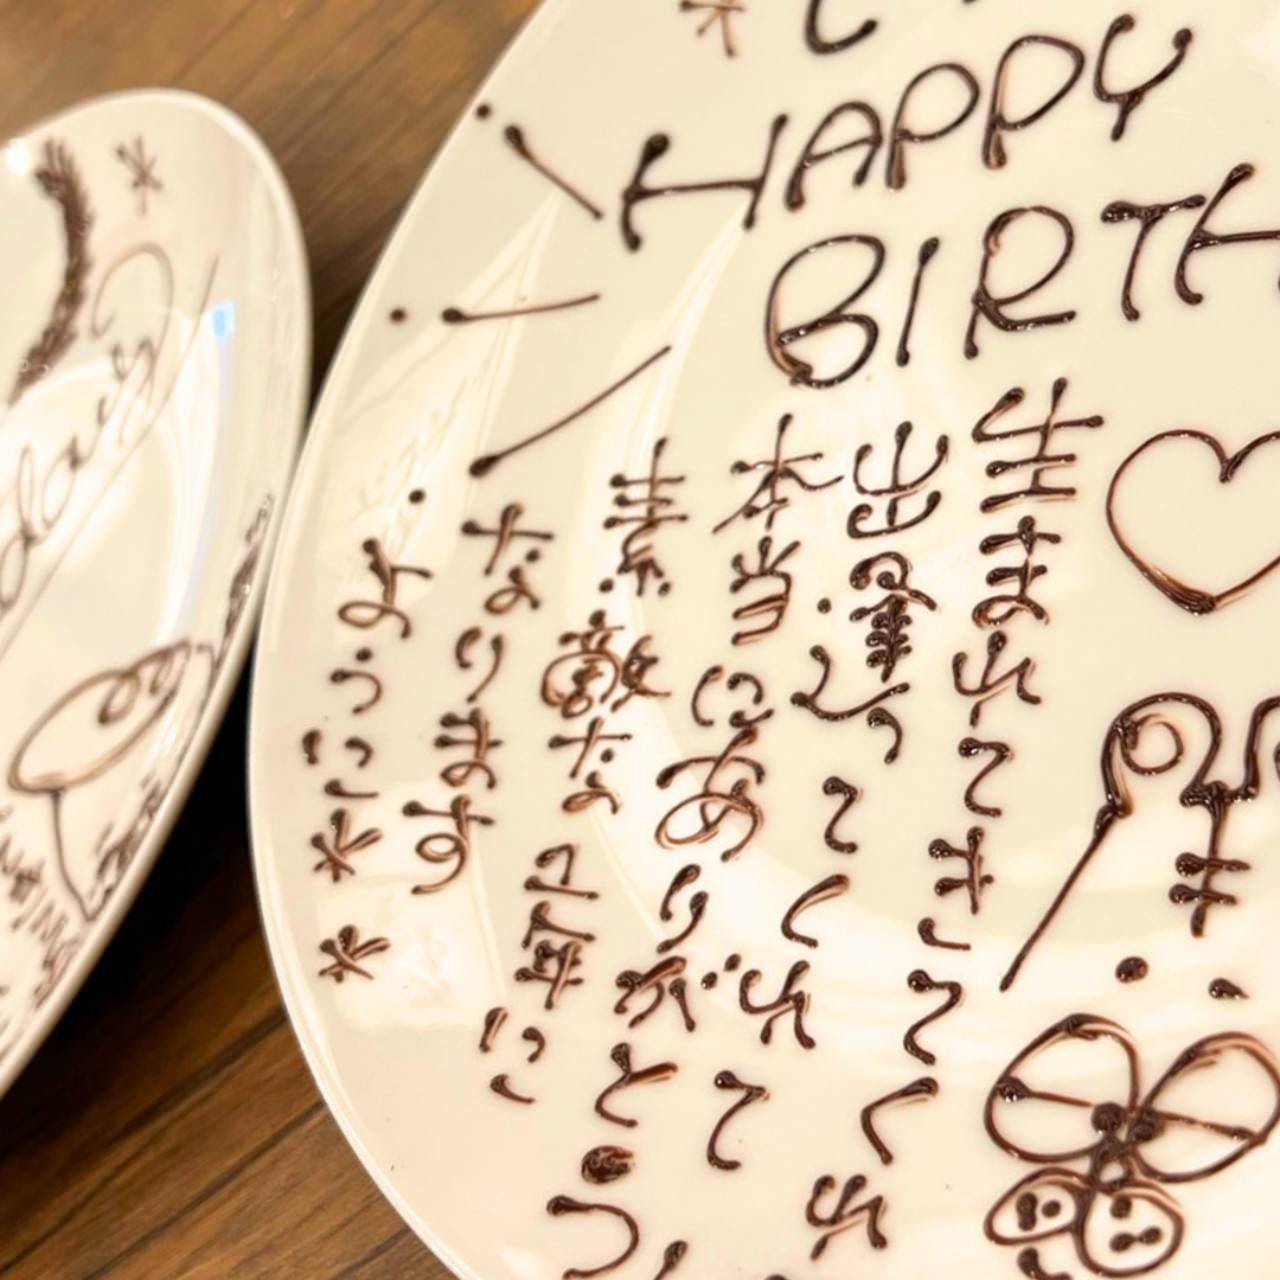 HAPPY
BIRTH
生まれてきてくれ
出逢ってくれて
本当にありがとう
素敵な1年に
なります
ように**
day